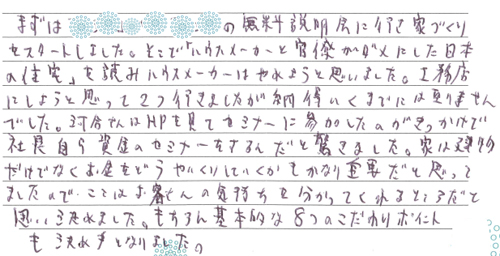 まずは の無料説明会に行き家づくり
をスタートしました。そこで「ハウスメーカーと官僚がダメにした日本
の住宅」を読みハウスメーカーはやめようと思いました。工務店
にしようと思って2つ行きましたが納得いくまでには至りません
でした。 さんはHPを見てセミナーに参加したのがきっかけで
社長自ら資金のセミナーをするんだと驚きました。家は建物
だけでなくお金をどうやりくりしていくかもかなり重要だと思って
ましたので、ここはお客さんの気持ちを分かってくれるところだと
思い決めました。もちろん基本的な8つのこだわりポイント
も決め手となりました。